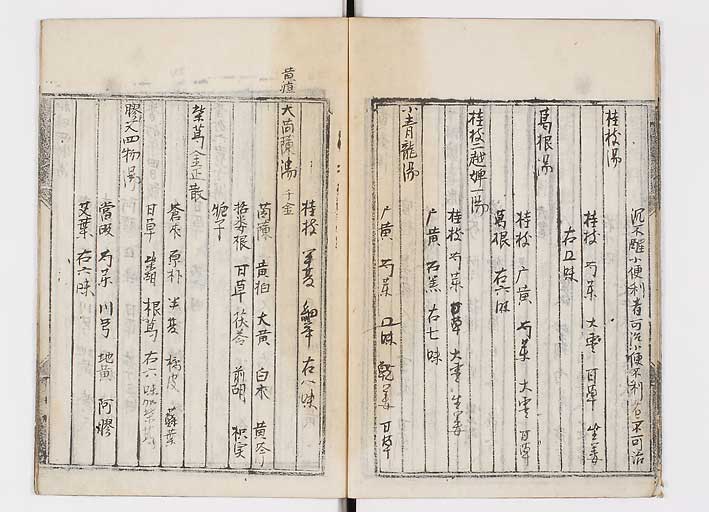 沉不醒小便利者可治小便不利者不可治
桂枝湯
桂枝 芍薬 大枣 甘草 生姜
右五味
葛根湯
桂枝 广黄 芍薬 大枣 甘草
葛根 右六味
桂枝二越婢一湯
桂枝 芍薬 甘草 大枣 生姜
广黄 石羔 右七味
小青龍湯
广黄 芍薬 五味 乾姜 甘草
桂枝 半夏 細辛 右八味
黄疸
大茵蔯湯 千金
茵蔯 黄柏 大黄 白朮 黄芩
栝蒌根 甘草 茯苓 前胡 枳実
柴葛金正散
蒼朮 厚朴 半夏 橘皮
甘草 根葛 右六味
膠艾四物湯
當皈 芍薬 川芎 地黄 阿膠
艾葉 右六味